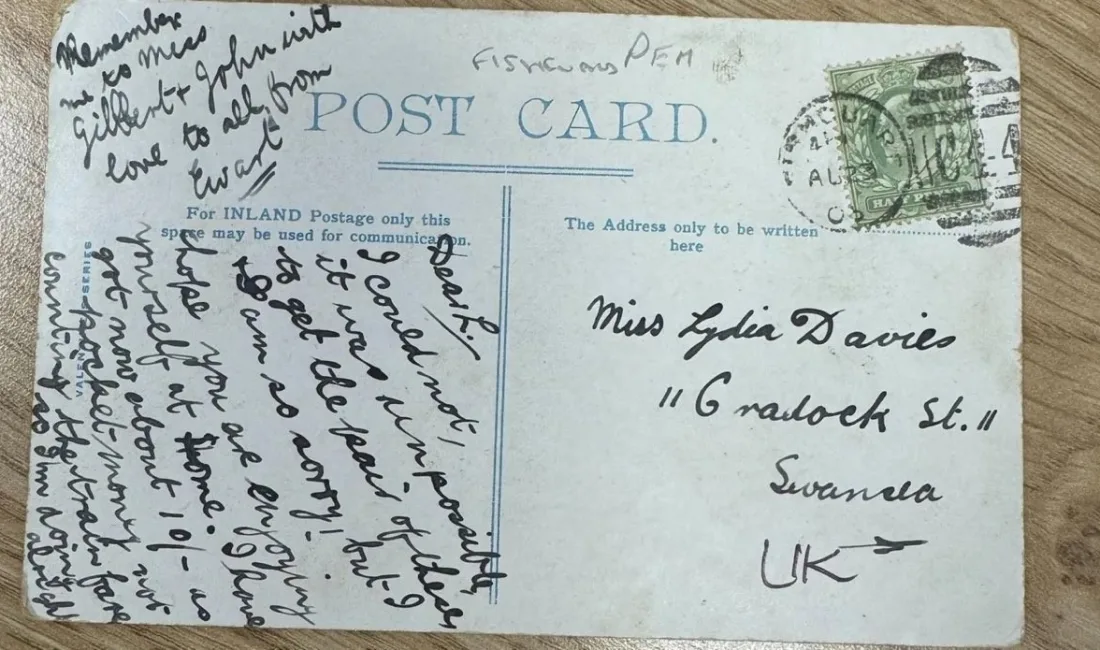 Remember
me to Miss
Gilbert + John with
love to all, from
Ewart
PEM
POST CARD.
FISHGUARD
AU 23
03
HALF PENNY
For INLAND Postage only this
space may be used for communication.
The Address only to be written
here
VALENTINES SERIES
Dear L./
I could not,
it was unpossible,
to get the pair of these
but I
am so sorry!
hope you are enjoying
yourself at Home. I have
got now about 10/- as
pocket-money not
counting the train fare
so I'm doing
alright
Miss Lydia Davies
"Cradock St."
Swansea
UK